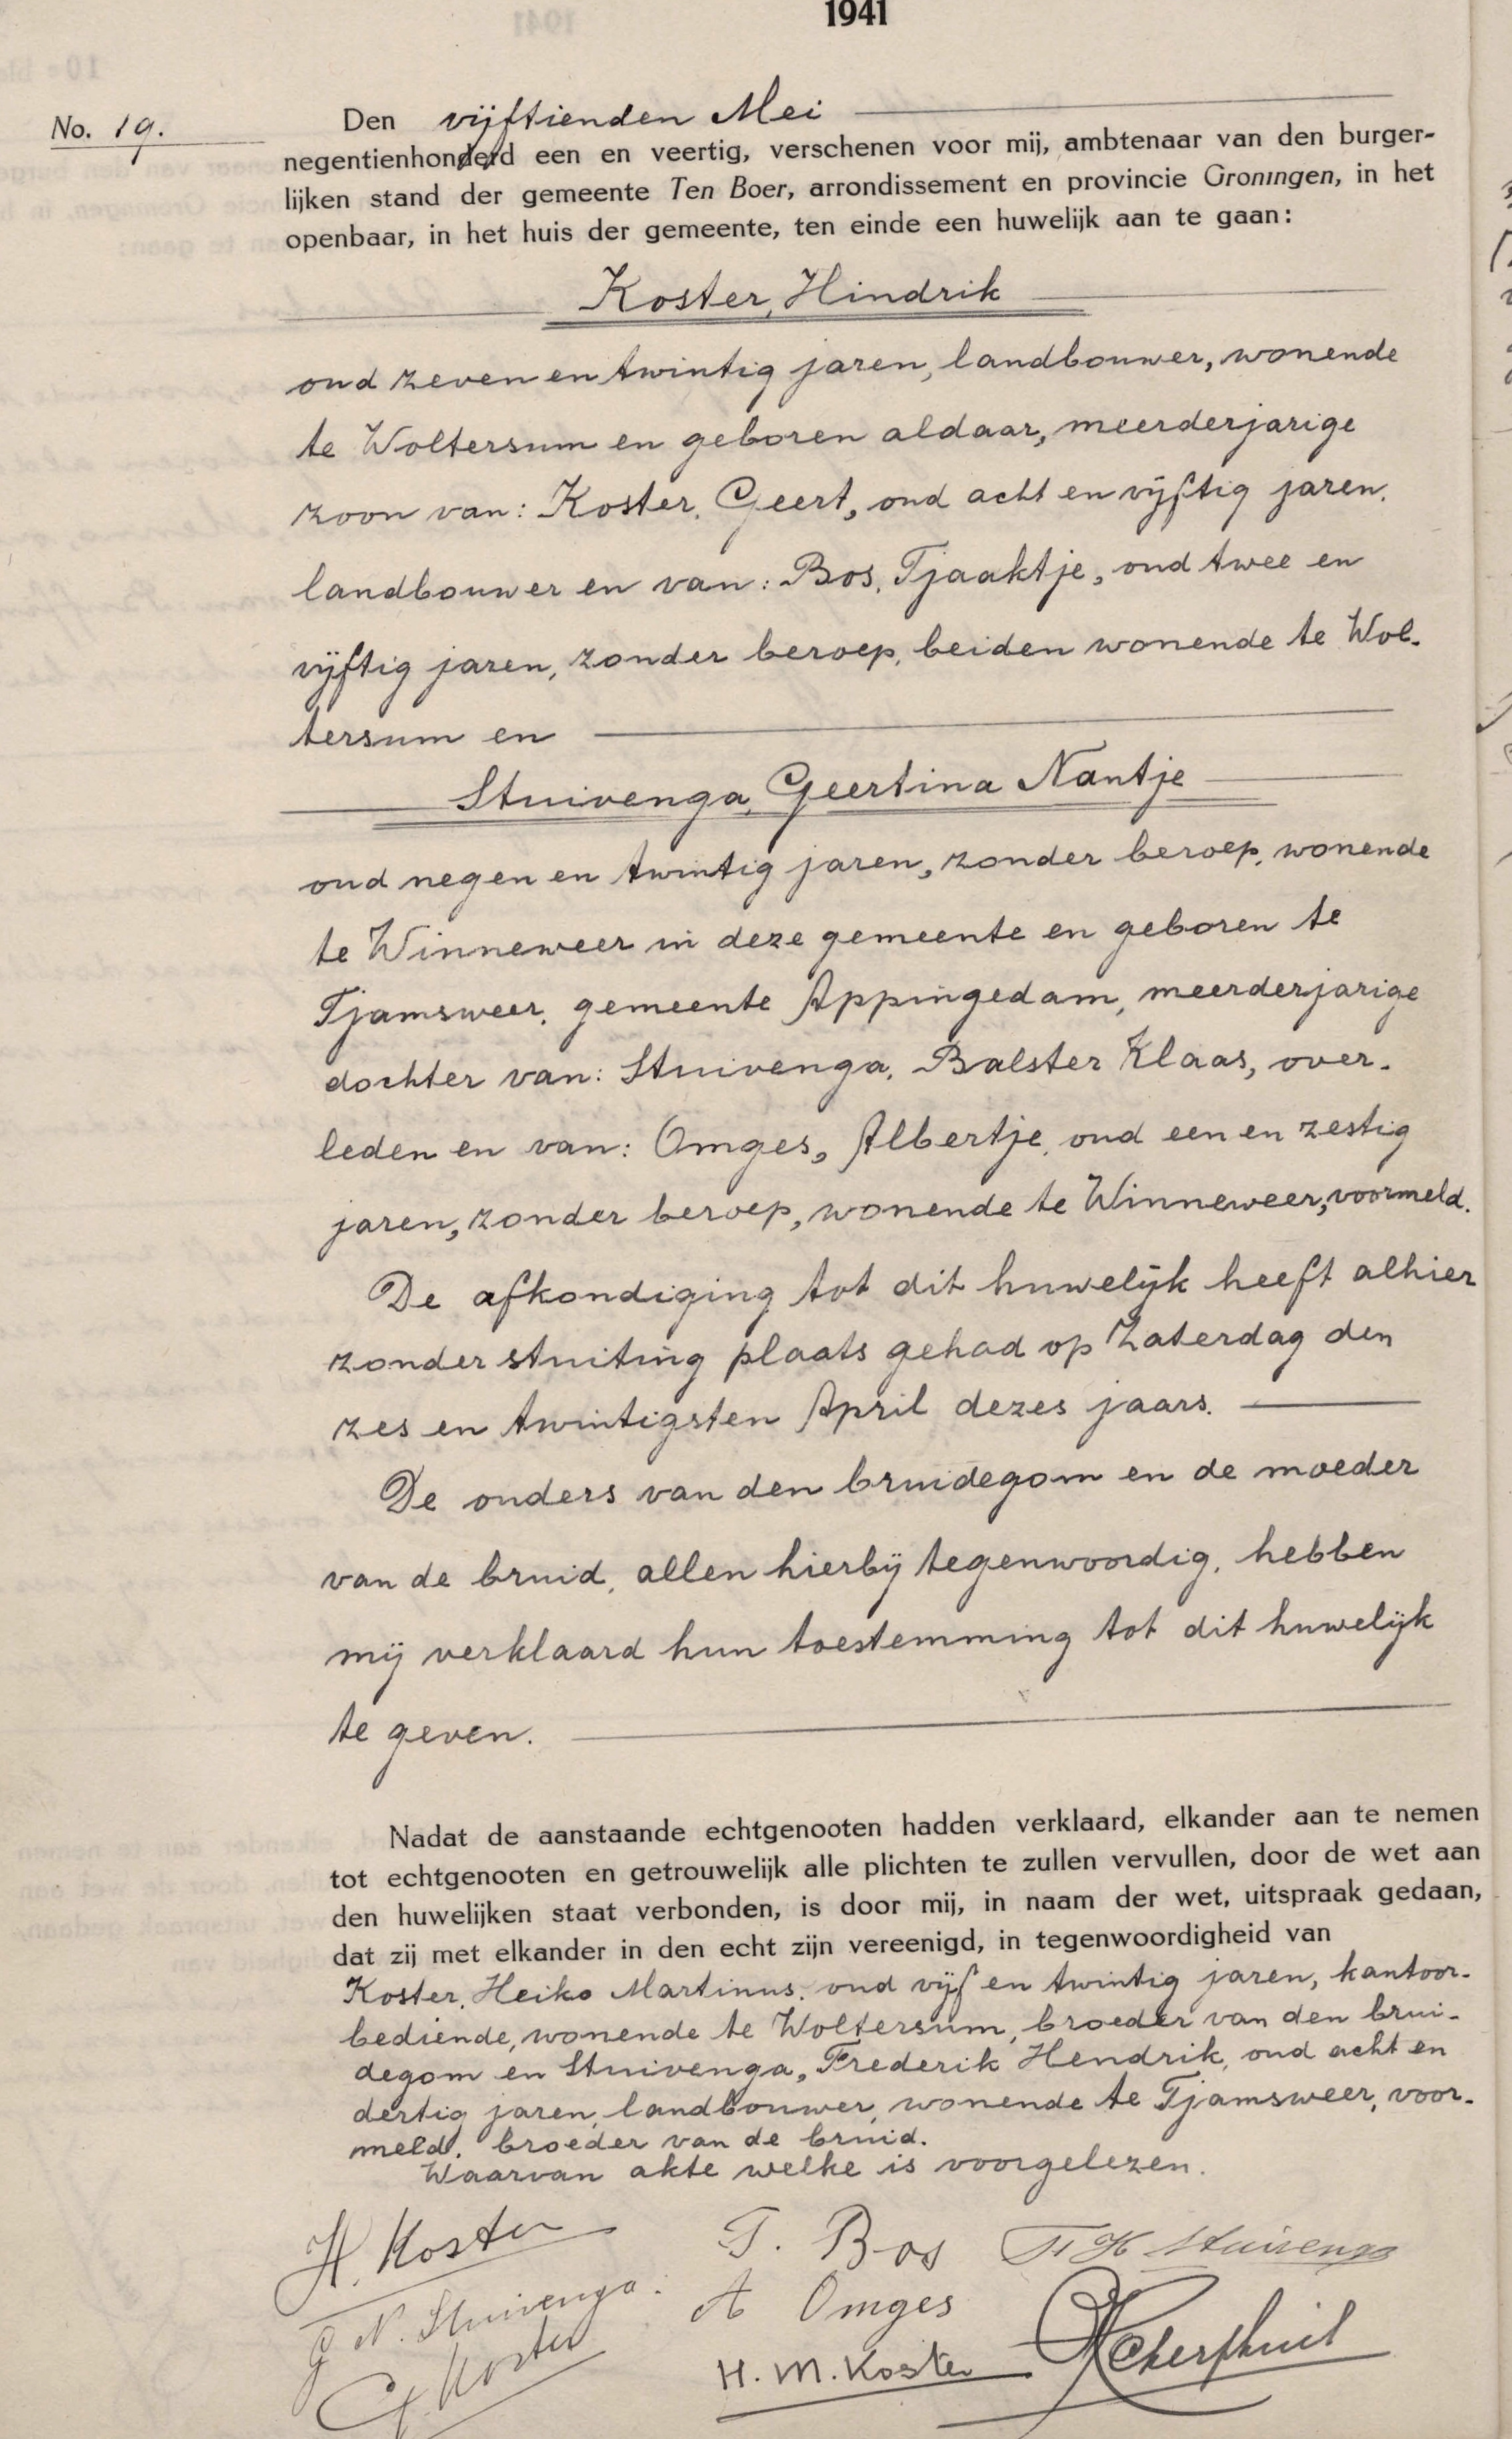 1941
No. 19.
Den vijftienden Mei
negentienhonderd een en veertig, verschenen voor mij, ambtenaar van den burger-
lijken stand der gemeente Ten Boer, arrondissement en provincie Groningen, in het
openbaar, in het huis der gemeente, ten einde een huwelijk aan te gaan:
Koster, Hindrik
oud zeven en twintig jaren, landbouwer, wonende
te Woltersum en geboren aldaar, meerderjarige
zoon van: Koster, Geert, oud acht en vijftig jaren,
landbouwer en van: Bos, Tjaaktje, oud twee en
vijftig jaren, zonder beroep, beiden wonende te Wol-
tersum en
Stuivenga, Geertina Nantje
oud negen en twintig jaren, zonder beroep, wonende
te Winneweer in deze gemeente en geboren te
Tjamsweer, gemeente Appingedam, meerderjarige
dochter van: Stuivenga, Balster Klaas, over-
leden en van: Omges, Albertje, oud een en zestig
jaren, zonder beroep, wonende te Winneweer, voormeld.
De afkondiging tot dit huwelijk heeft alhier
zonder stuiting plaats gehad op Zaterdag den
zes en twintigsten April dezes jaars.
De ouders van den bruidegom en de moeder
van de bruid, allen hierbij tegenwoordig, hebben
mij verklaard hun toestemming tot dit huwelijk
te geven.
Nadat de aanstaande echtgenooten hadden verklaard, elkander aan te nemen
tot echtgenooten en getrouwelijk alle plichten te zullen vervullen, door de wet aan
den huwelijken staat verbonden, is door mij, in naam der wet, uitspraak gedaan,
dat zij met elkander in den echt zijn vereenigd, in tegenwoordigheid van
Koster, Heiko Martinus, oud vijf en twintig jaren, kantoor-
bediende, wonende te Woltersum, broeder van den brui-
degom en Stuivenga, Frederik Hendrik, oud acht en
dertig jaren, landbouwer, wonende te Tjamsweer, voor-
meld, broeder van de bruid.
Waarvan akte welke is voorgelezen.
H. Koster T. Bos F H Stuivenga
G N. Stuivenga. A Omges
G. Koster H. M. Koster